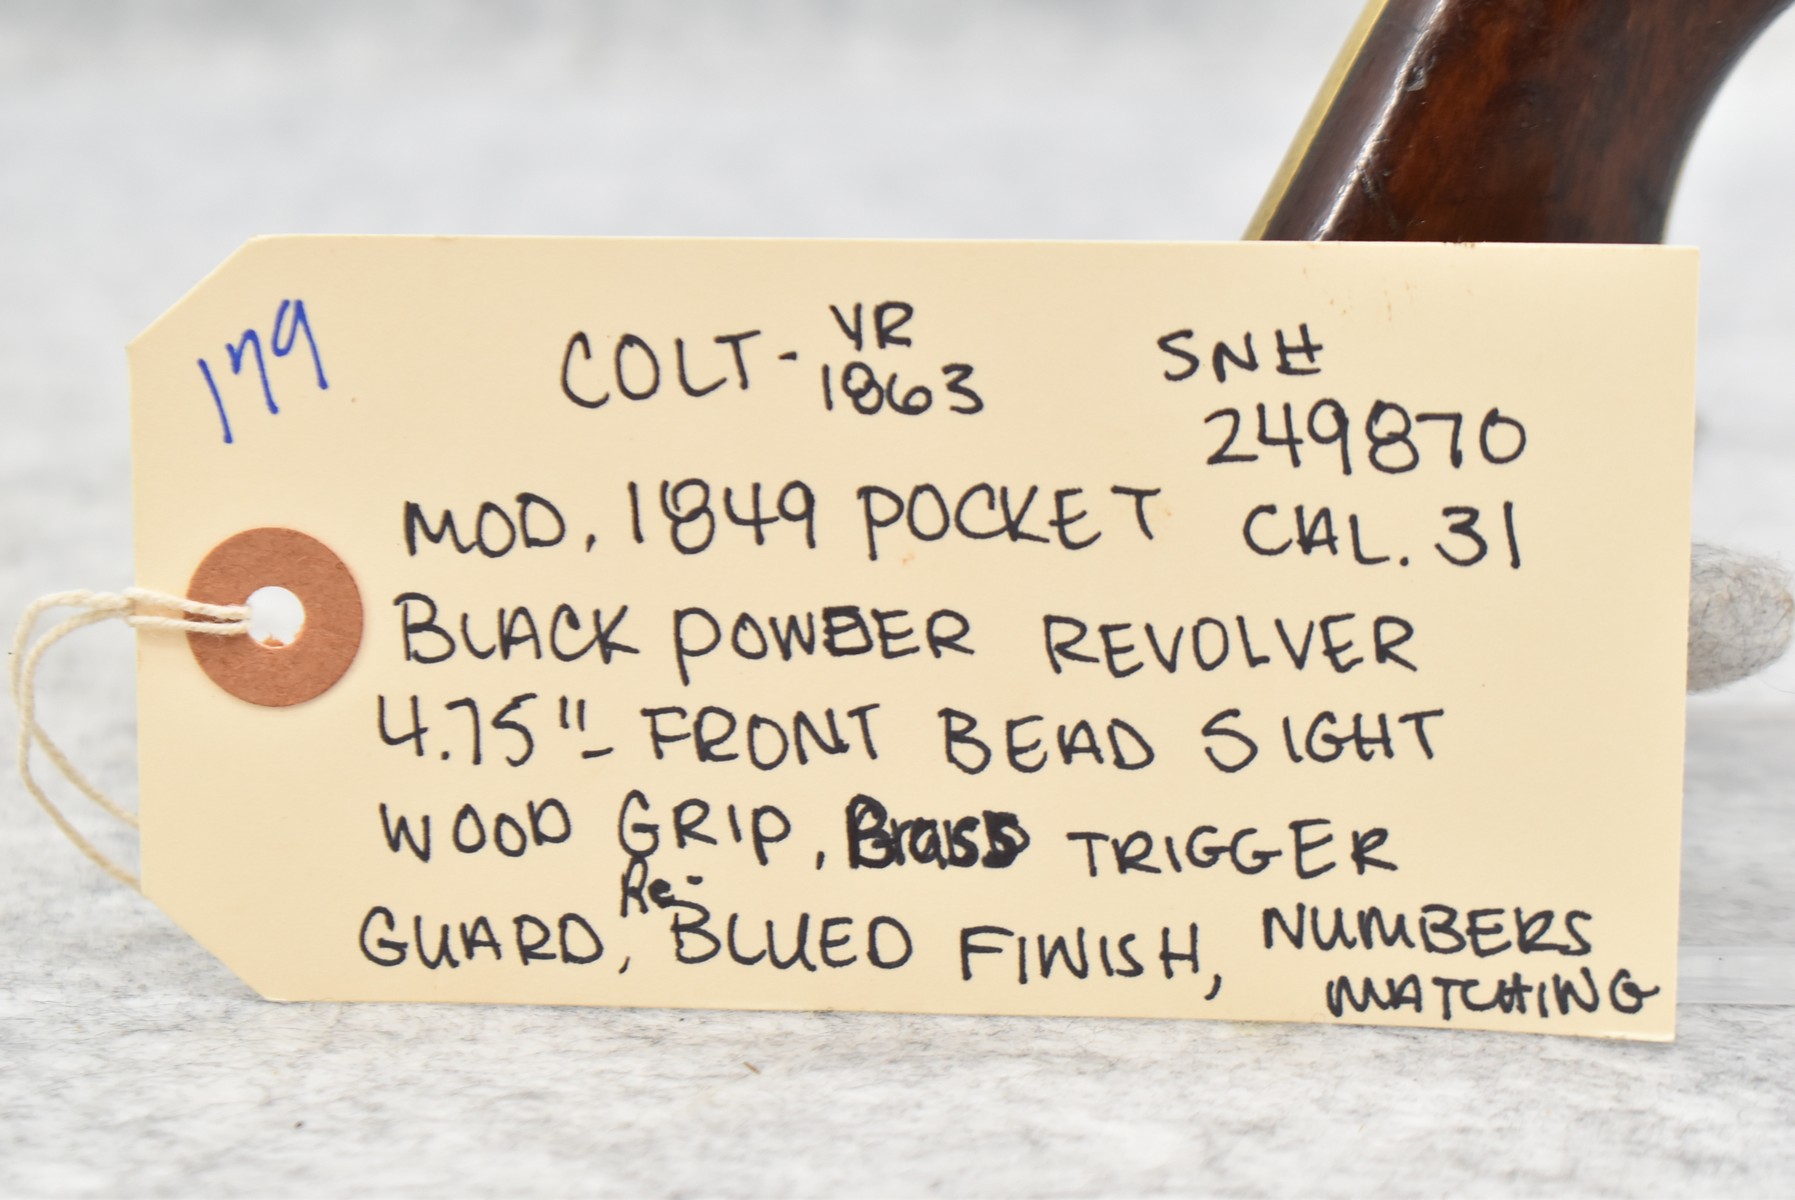 179
COLT - YR 1863
SN#
249870
MOD. 1849 POCKET CAL. 31
BLACK POWDER REVOLVER
4.75" - FRONT BEAD SIGHT
WOOD GRIP, Brass TRIGGER
GUARD, Re-BLUED FINISH, NUMBERS
MATCHING